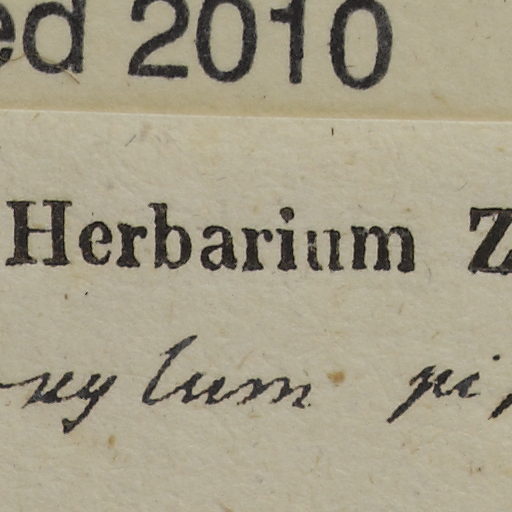 ed 2010
Herbarium Z
xylum pi